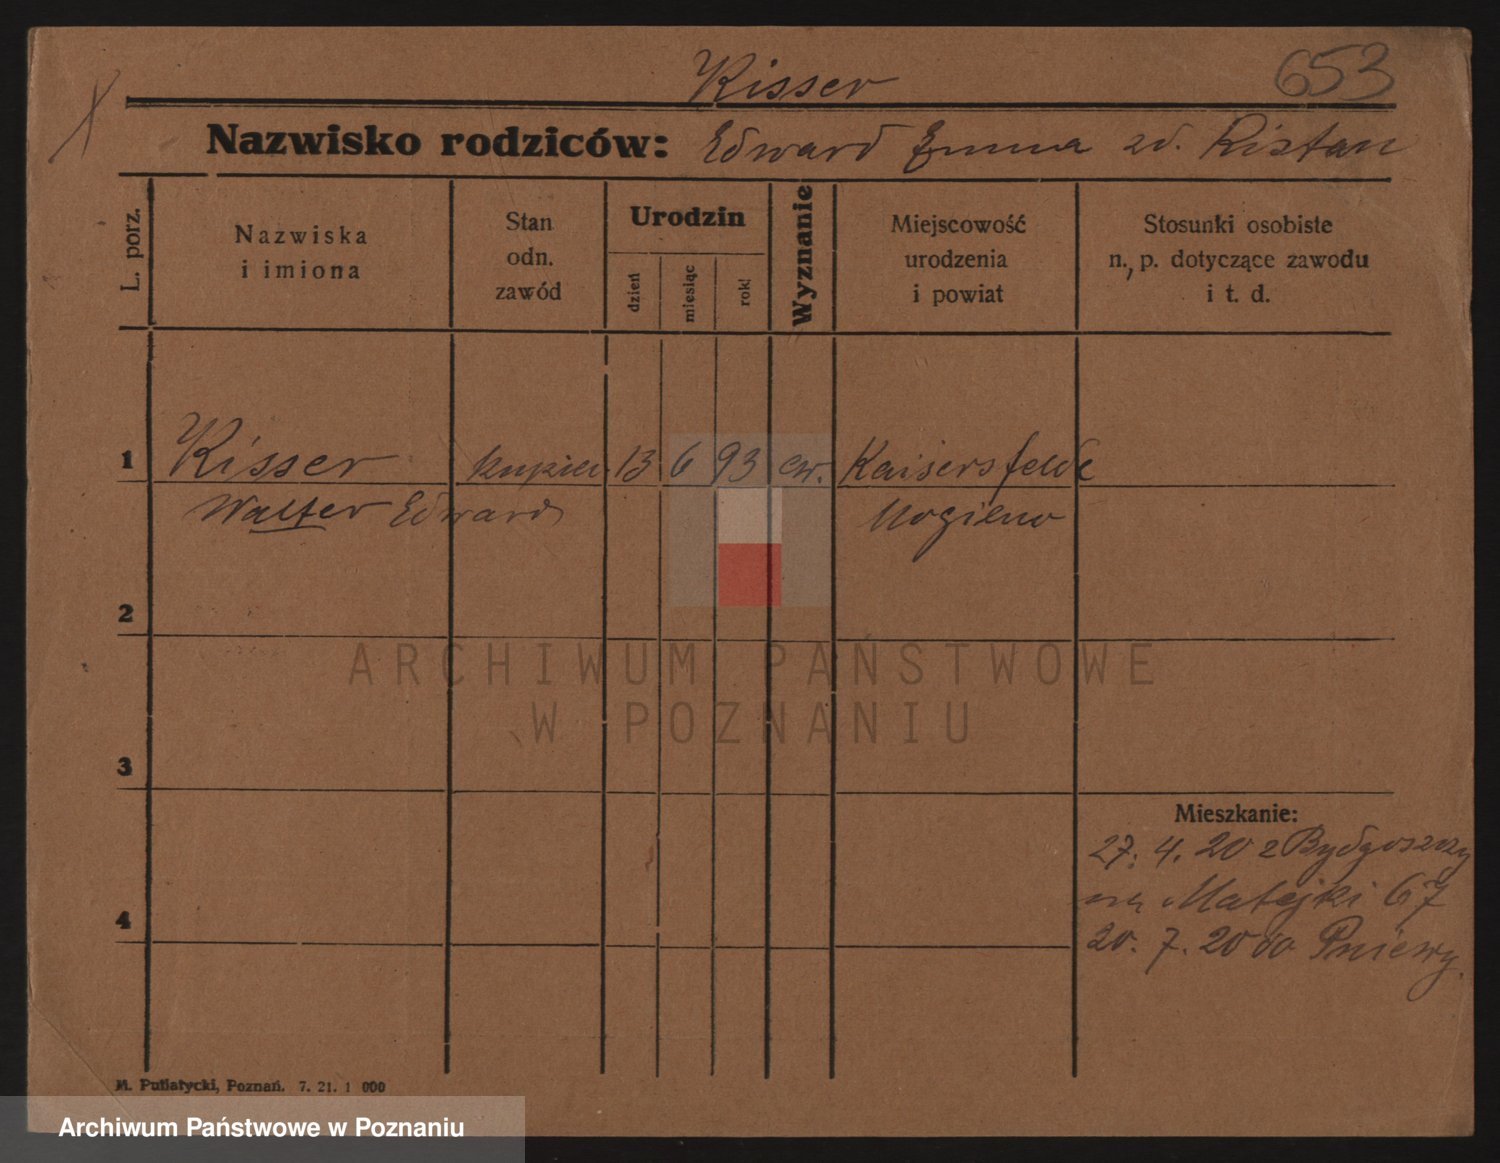 Kisser
653
Nazwisko rodziców: Edward Emma zd. Ristau
L. porz.
Nazwiska
i imiona
Stan
odn.
zawód
Urodzin
dzień
miesiąc
rok
Wyznanie
Miejscowość
urodzenia
i powiat
Stosunki osobiste
n. p. dotyczące zawodu
i t. d.
1 Kisser kupiec 13 6 93 ew. Kaisersfelde
Walter Edward Mogilno
2
ARCHIWUM PAŃSTWOWE
W POZNANIU
3
Mieszkanie:
27. 4. 20 z Bydgoszczy
Matejki 67
4
20. 7. 20 do Pniewy.
M. Putiatycki, Poznań. 7. 21. 1 000
Archiwum Państwowe w Poznaniu